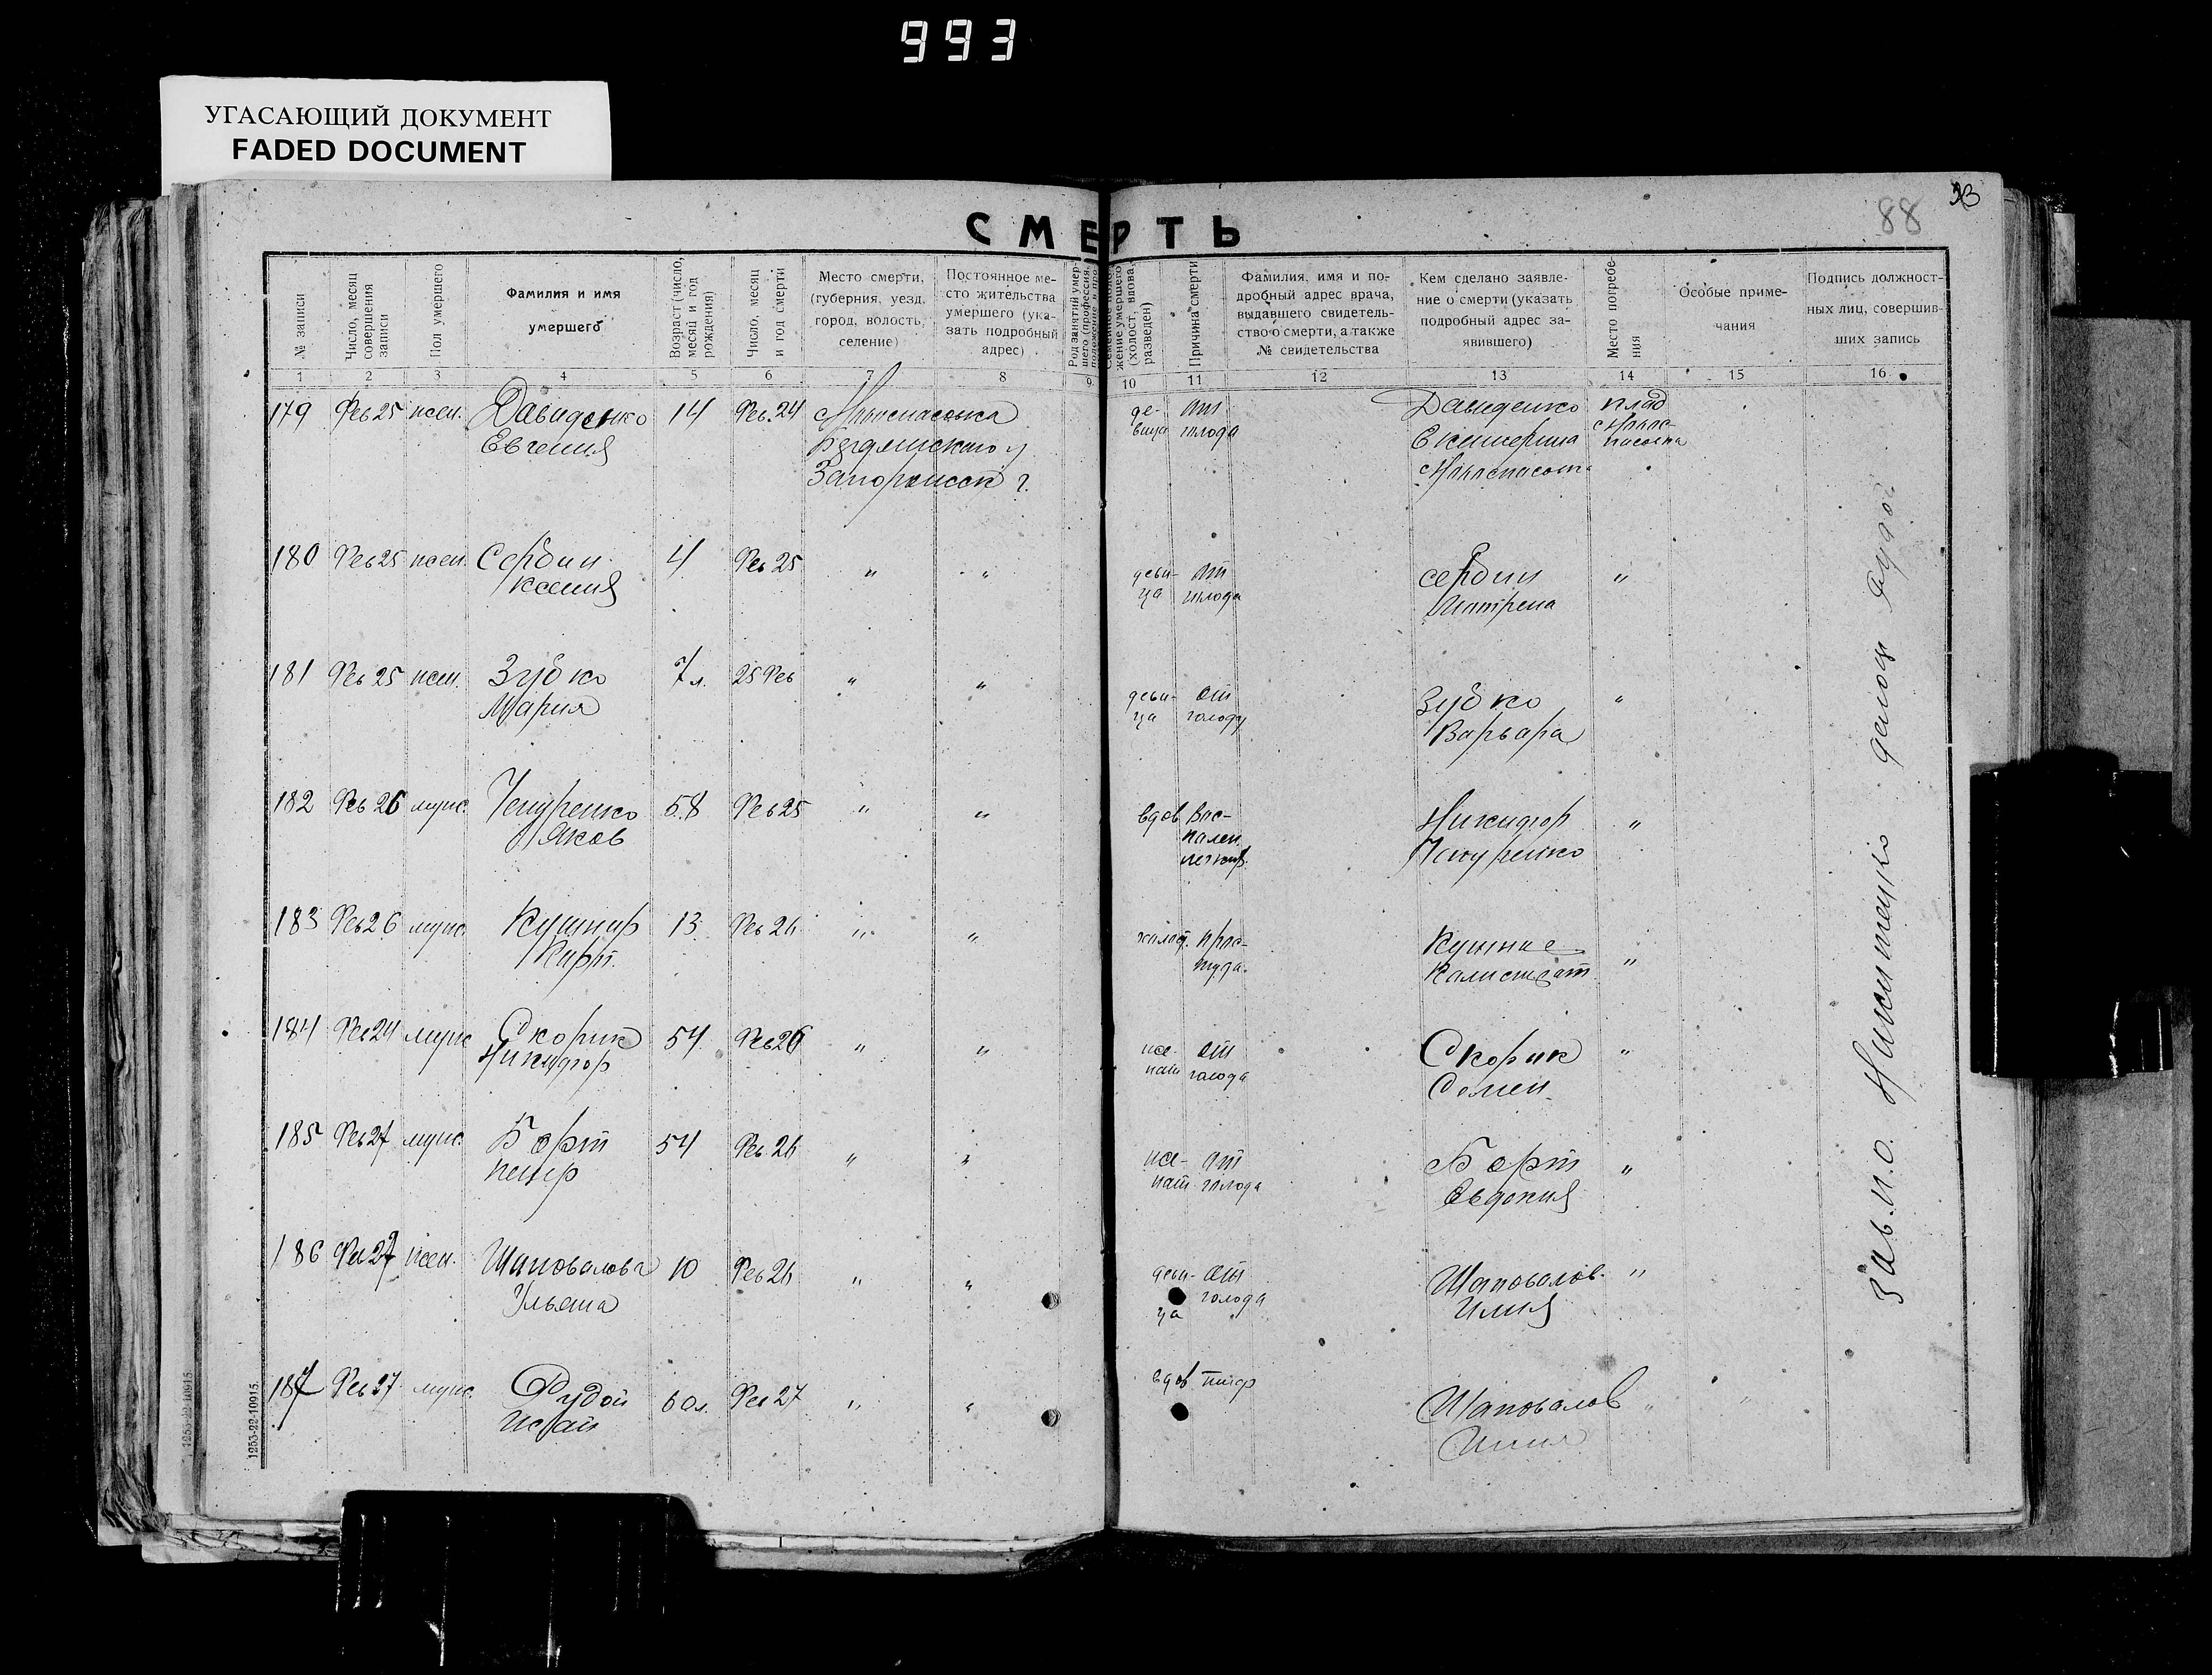 993
УГАСАЮЩИЙ ДОКУМЕНТ
FADED DOCUMENT
88
СМЕРТЬ
№ записи
Число, месяц совершения записи
Пол умершего
Фамилия и имя умершего
Возраст (число, месяц и год рождения)
Число, месяц и год смерти
Место смерти, (губерния, уезд, город, волость, селение)
Постоянное место жительства умершего (указать подробный адрес)
(холост, вдова, разведен)
Причина смерти
Фамилия, имя и подробный адрес врача, выдавшего свидетельство о смерти, а также № свидетельства
Кем сделано заявление о смерти (указать подробный адрес заявившего)
Место погребения
Особые примечания
Подпись должностных лиц, совершивших запись
1 2 3 4 5 6 7 8 9 10 11 12 13 14 15 16
179 Фев 25 жен. Давиденко 14 Фев. 24 де- от Давиденко клад
Евгения Бердянского у вица голода Екатерина
Запорожск г.
180 Фев 25 жен. Сердин 4 Фев 25 " " деви- от Сердин "
Ксения ца голода
181 Фев 25 жен. Зубко 7 л. 25 Фев " " деви- от Зубко "
Мария ца голоду Варвара
182 Фев 26 муж. Чепуренко 58 Фев 25 " " вдов Вос- Никифор "
Яков пален. Чепуренко
легких.
183 Фев 26 муж. Кушнир 13 Фев 26 " " холост. прос- "
туда. Калистрат
184 муж Скорик 54 Фев 26 " " же- от Скорик "
Никифор нат голода Семен
185 Фев 27 муж. Борт 54 Фев. 26 " " же- от Борт "
Петр нат голода Евдокия
186 Фев 27 жен. Шаповалова 10 Фев 26 " " деви- от Шаповалов. "
Ульяна ца голода Илия
187 Фев 27 муж. Рудой 60 л. Фев 27 " " вдов тиф Шаповалов "
Исай
1253-22-10915.